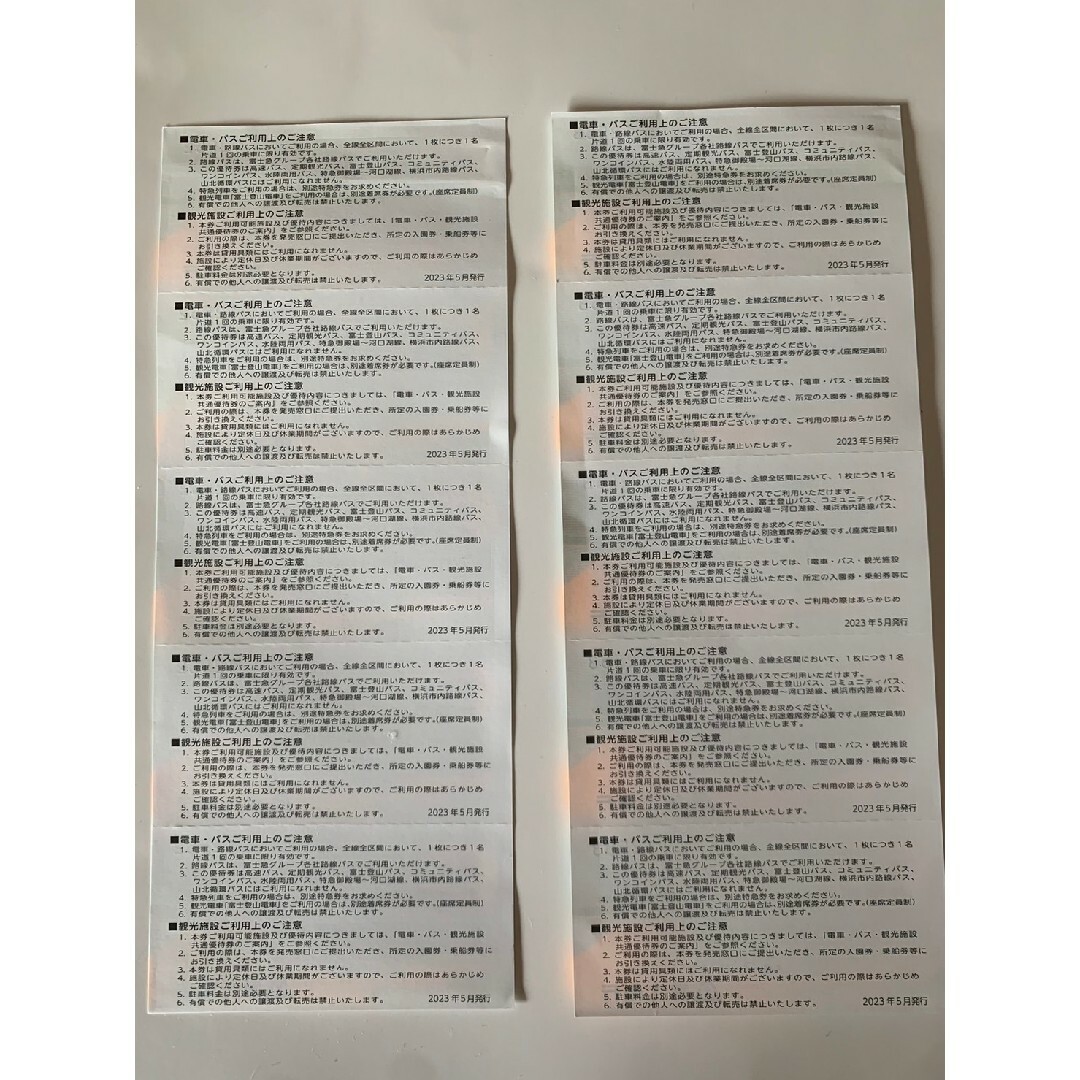 ■電車・バスご利用上のご注意
1. 電車・路線バスにおいてご利用の場合、全線全区間において、1枚につき1名
片道1回の乗車に限り有効です。
2. 路線バスは、富士急グループ各社路線バスでご利用いただけます。
3. この優待券は高速バス、定期観光バス、富士登山バス、コミュニティバス、
ワンコインバス、水陸両用バス、特急御殿場〜河口湖線、横浜市内路線バス、
山北循環バスにはご利用になれません。
4. 特急列車をご利用の場合は、別途特急券をお求めください。
5. 観光電車「富士登山電車」をご利用の場合は、別途着席券が必要です。(座席定員制)
6. 有償での他人への譲渡及び転売は禁止いたします。
■観光施設ご利用上のご注意
1. 本券ご利用可能施設及び優待内容につきましては、「電車・バス・観光施設
共通優待券のご案内」をご参照ください。
2. ご利用の際は、本券を発売窓口にご提出いただき、所定の入園券・乗船券等に
お引き換えください。
3. 本券は貸用具類にはご利用になれません。
4. 施設により定休日及び休業期間がございますので、ご利用の際はあらかじめ
ご確認ください。
5. 駐車料金は別途必要となります。
6. 有償での他人への譲渡及び転売は禁止いたします。
2023年5月発行
■電車・バスご利用上のご注意
1. 電車・路線バスにおいてご利用の場合、全線全区間において、1枚につき1名
片道1回の乗車に限り有効です。
2. 路線バスは、富士急グループ各社路線バスでご利用いただけます。
3. この優待券は高速バス、定期観光バス、富士登山バス、コミュニティバス、
ワンコインバス、水陸両用バス、特急御殿場〜河口湖線、横浜市内路線バス、
山北循環バスにはご利用になれません。
4. 特急列車をご利用の場合は、別途特急券をお求めください。
5. 観光電車「富士登山電車」をご利用の場合は、別途着席券が必要です。(座席定員制)
6. 有償での他人への譲渡及び転売は禁止いたします。
■観光施設ご利用上のご注意
1. 本券ご利用可能施設及び優待内容につきましては、「電車・バス・観光施設
共通優待券のご案内」をご参照ください。
2. ご利用の際は、本券を発売窓口にご提出いただき、所定の入園券・乗船券等に
お引き換えください。
3. 本券は貸用具類にはご利用になれません。
4. 施設により定休日及び休業期間がございますので、ご利用の際はあらかじめ
ご確認ください。
5. 駐車料金は別途必要となります。
6. 有償での他人への譲渡及び転売は禁止いたします。
2023年5月発行
■電車・バスご利用上のご注意
1. 電車・路線バスにおいてご利用の場合、全線全区間において、1枚につき1名
片道1回の乗車に限り有効です。
2. 路線バスは、富士急グループ各社路線バスでご利用いただけます。
3. この優待券は高速バス、定期観光バス、富士登山バス、コミュニティバス、
ワンコインバス、水陸両用バス、特急御殿場〜河口湖線、横浜市内路線バス、
山北循環バスにはご利用になれません。
4. 特急列車をご利用の場合は、別途特急券をお求めください。
5. 観光電車「富士登山電車」をご利用の場合は、別途着席券が必要です。(座席定員制)
6. 有償での他人への譲渡及び転売は禁止いたします。
■観光施設ご利用上のご注意
1. 本券ご利用可能施設及び優待内容につきましては、「電車・バス・観光施設
共通優待券のご案内」をご参照ください。
2. ご利用の際は、本券を発売窓口にご提出いただき、所定の入園券・乗船券等に
お引き換えください。
3. 本券は貸用具類にはご利用になれません。
4. 施設により定休日及び休業期間がございますので、ご利用の際はあらかじめ
ご確認ください。
5. 駐車料金は別途必要となります。
6. 有償での他人への譲渡及び転売は禁止いたします。
2023年5月発行
■電車・バスご利用上のご注意
1. 電車・路線バスにおいてご利用の場合、全線全区間において、1枚につき1名
片道1回の乗車に限り有効です。
2. 路線バスは、富士急グループ各社路線バスでご利用いただけます。
3. この優待券は高速バス、定期観光バス、富士登山バス、コミュニティバス、
ワンコインバス、水陸両用バス、特急御殿場〜河口湖線、横浜市内路線バス、
山北循環バスにはご利用になれません。
4. 特急列車をご利用の場合は、別途特急券をお求めください。
5. 観光電車「富士登山電車」をご利用の場合は、別途着席券が必要です。(座席定員制)
6. 有償での他人への譲渡及び転売は禁止いたします。
■観光施設ご利用上のご注意
1. 本券ご利用可能施設及び優待内容につきましては、「電車・バス・観光施設
共通優待券のご案内」をご参照ください。
2. ご利用の際は、本券を発売窓口にご提出いただき、所定の入園券・乗船券等に
お引き換えください。
3. 本券は貸用具類にはご利用になれません。
4. 施設により定休日及び休業期間がございますので、ご利用の際はあらかじめ
ご確認ください。
5. 駐車料金は別途必要となります。
6. 有償での他人への譲渡及び転売は禁止いたします。
2023年5月発行
■電車・バスご利用上のご注意
1. 電車・路線バスにおいてご利用の場合、全線全区間において、1枚につき1名
片道1回の乗車に限り有効です。
2. 路線バスは、富士急グループ各社路線バスでご利用いただけます。
3. この優待券は高速バス、定期観光バス、富士登山バス、コミュニティバス、
ワンコインバス、水陸両用バス、特急御殿場〜河口湖線、横浜市内路線バス、
山北循環バスにはご利用になれません。
4. 特急列車をご利用の場合は、別途特急券をお求めください。
5. 観光電車「富士登山電車」をご利用の場合は、別途着席券が必要です。(座席定員制)
6. 有償での他人への譲渡及び転売は禁止いたします。
■観光施設ご利用上のご注意
1. 本券ご利用可能施設及び優待内容につきましては、「電車・バス・観光施設
共通優待券のご案内」をご参照ください。
2. ご利用の際は、本券を発売窓口にご提出いただき、所定の入園券・乗船券等に
お引き換えください。
3. 本券は貸用具類にはご利用になれません。
4. 施設により定休日及び休業期間がございますので、ご利用の際はあらかじめ
ご確認ください。
5. 駐車料金は別途必要となります。
6. 有償での他人への譲渡及び転売は禁止いたします。
2023年5月発行
■電車・バスご利用上のご注意
1. 電車・路線バスにおいてご利用の場合、全線全区間において、1枚につき1名
片道1回の乗車に限り有効です。
2. 路線バスは、富士急グループ各社路線バスでご利用いただけます。
3. この優待券は高速バス、定期観光バス、富士登山バス、コミュニティバス、
ワンコインバス、水陸両用バス、特急御殿場〜河口湖線、横浜市内路線バス、
山北循環バスにはご利用になれません。
4. 特急列車をご利用の場合は、別途特急券をお求めください。
5. 観光電車「富士登山電車」をご利用の場合は、別途着席券が必要です。(座席定員制)
6. 有償での他人への譲渡及び転売は禁止いたします。
■観光施設ご利用上のご注意
1. 本券ご利用可能施設及び優待内容につきましては、「電車・バス・観光施設
共通優待券のご案内」をご参照ください。
2. ご利用の際は、本券を発売窓口にご提出いただき、所定の入園券・乗船券等に
お引き換えください。
3. 本券は貸用具類にはご利用になれません。
4. 施設により定休日及び休業期間がございますので、ご利用の際はあらかじめ
ご確認ください。
5. 駐車料金は別途必要となります。
6. 有償での他人への譲渡及び転売は禁止いたします。
2023年5月発行
■電車・バスご利用上のご注意
1. 電車・路線バスにおいてご利用の場合、全線全区間において、1枚につき1名
片道1回の乗車に限り有効です。
2. 路線バスは、富士急グループ各社路線バスでご利用いただけます。
3. この優待券は高速バス、定期観光バス、富士登山バス、コミュニティバス、
ワンコインバス、水陸両用バス、特急御殿場〜河口湖線、横浜市内路線バス、
山北循環バスにはご利用になれません。
4. 特急列車をご利用の場合は、別途特急券をお求めください。
5. 観光電車「富士登山電車」をご利用の場合は、別途着席券が必要です。(座席定員制)
6. 有償での他人への譲渡及び転売は禁止いたします。
■観光施設ご利用上のご注意
1. 本券ご利用可能施設及び優待内容につきましては、「電車・バス・観光施設
共通優待券のご案内」をご参照ください。
2. ご利用の際は、本券を発売窓口にご提出いただき、所定の入園券・乗船券等に
お引き換えください。
3. 本券は貸用具類にはご利用になれません。
4. 施設により定休日及び休業期間がございますので、ご利用の際はあらかじめ
ご確認ください。
5. 駐車料金は別途必要となります。
6. 有償での他人への譲渡及び転売は禁止いたします。
2023年5月発行
■電車・バスご利用上のご注意
1. 電車・路線バスにおいてご利用の場合、全線全区間において、1枚につき1名
片道1回の乗車に限り有効です。
2. 路線バスは、富士急グループ各社路線バスでご利用いただけます。
3. この優待券は高速バス、定期観光バス、富士登山バス、コミュニティバス、
ワンコインバス、水陸両用バス、特急御殿場〜河口湖線、横浜市内路線バス、
山北循環バスにはご利用になれません。
4. 特急列車をご利用の場合は、別途特急券をお求めください。
5. 観光電車「富士登山電車」をご利用の場合は、別途着席券が必要です。(座席定員制)
6. 有償での他人への譲渡及び転売は禁止いたします。
■観光施設ご利用上のご注意
1. 本券ご利用可能施設及び優待内容につきましては、「電車・バス・観光施設
共通優待券のご案内」をご参照ください。
2. ご利用の際は、本券を発売窓口にご提出いただき、所定の入園券・乗船券等に
お引き換えください。
3. 本券は貸用具類にはご利用になれません。
4. 施設により定休日及び休業期間がございますので、ご利用の際はあらかじめ
ご確認ください。
5. 駐車料金は別途必要となります。
6. 有償での他人への譲渡及び転売は禁止いたします。
2023年5月発行
■電車・バスご利用上のご注意
1. 電車・路線バスにおいてご利用の場合、全線全区間において、1枚につき1名
片道1回の乗車に限り有効です。
2. 路線バスは、富士急グループ各社路線バスでご利用いただけます。
3. この優待券は高速バス、定期観光バス、富士登山バス、コミュニティバス、
ワンコインバス、水陸両用バス、特急御殿場〜河口湖線、横浜市内路線バス、
山北循環バスにはご利用になれません。
4. 特急列車をご利用の場合は、別途特急券をお求めください。
5. 観光電車「富士登山電車」をご利用の場合は、別途着席券が必要です。(座席定員制)
6. 有償での他人への譲渡及び転売は禁止いたします。
■観光施設ご利用上のご注意
1. 本券ご利用可能施設及び優待内容につきましては、「電車・バス・観光施設
共通優待券のご案内」をご参照ください。
2. ご利用の際は、本券を発売窓口にご提出いただき、所定の入園券・乗船券等に
お引き換えください。
3. 本券は貸用具類にはご利用になれません。
4. 施設により定休日及び休業期間がございますので、ご利用の際はあらかじめ
ご確認ください。
5. 駐車料金は別途必要となります。
6. 有償での他人への譲渡及び転売は禁止いたします。
2023年5月発行
■電車・バスご利用上のご注意
1. 電車・路線バスにおいてご利用の場合、全線全区間において、1枚につき1名
片道1回の乗車に限り有効です。
2. 路線バスは、富士急グループ各社路線バスでご利用いただけます。
3. この優待券は高速バス、定期観光バス、富士登山バス、コミュニティバス、
ワンコインバス、水陸両用バス、特急御殿場〜河口湖線、横浜市内路線バス、
山北循環バスにはご利用になれません。
4. 特急列車をご利用の場合は、別途特急券をお求めください。
5. 観光電車「富士登山電車」をご利用の場合は、別途着席券が必要です。(座席定員制)
6. 有償での他人への譲渡及び転売は禁止いたします。
■観光施設ご利用上のご注意
1. 本券ご利用可能施設及び優待内容につきましては、「電車・バス・観光施設
共通優待券のご案内」をご参照ください。
2. ご利用の際は、本券を発売窓口にご提出いただき、所定の入園券・乗船券等に
お引き換えください。
3. 本券は貸用具類にはご利用になれません。
4. 施設により定休日及び休業期間がございますので、ご利用の際はあらかじめ
ご確認ください。
5. 駐車料金は別途必要となります。
6. 有償での他人への譲渡及び転売は禁止いたします。
2023年5月発行